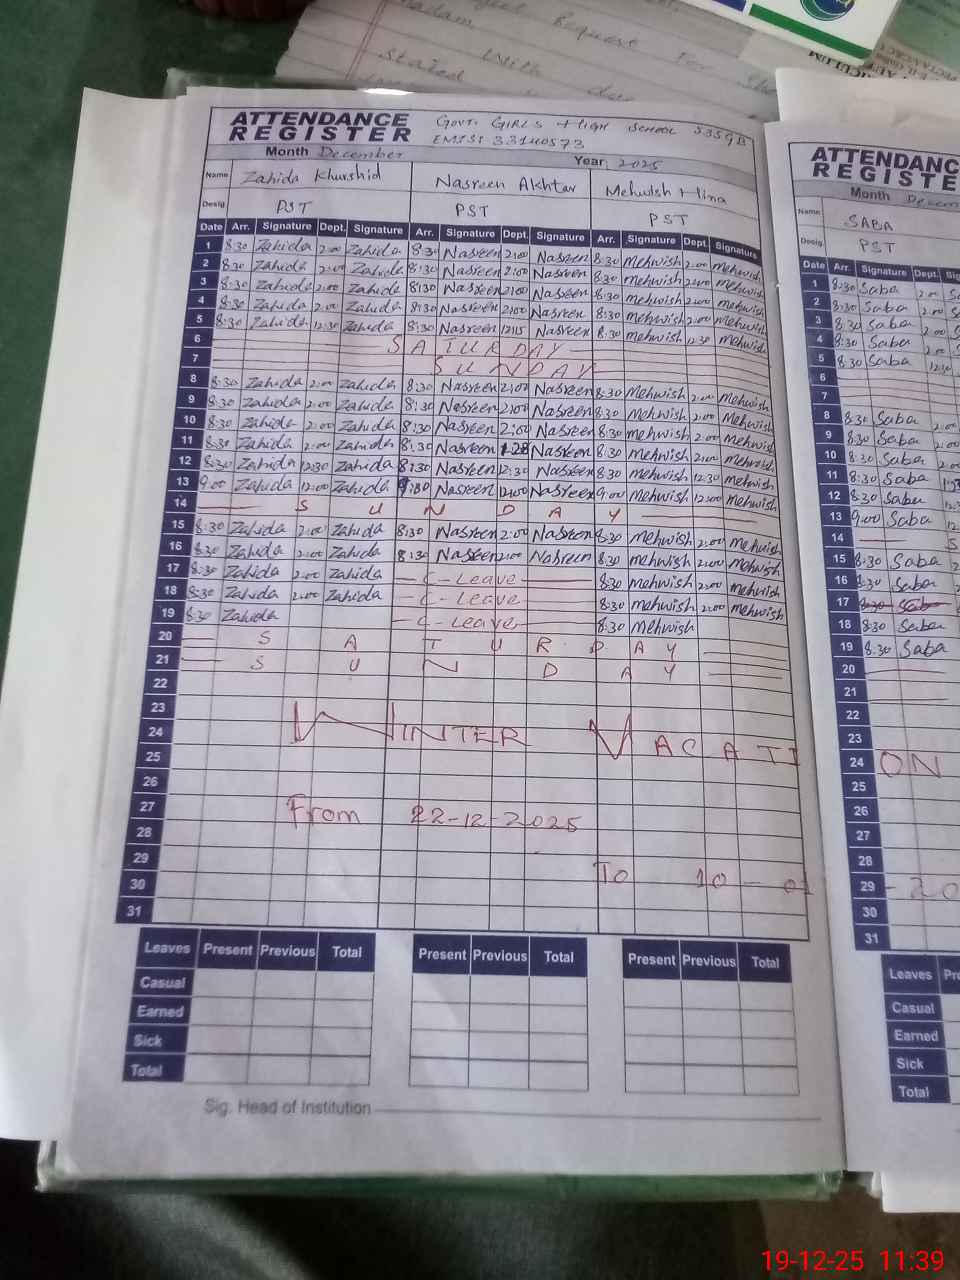 Request For the
madam
stated With due
CULUM
ATTENDANCE REGISTER
Govt. GIRLS High School 535GB
EMIS: 33140573
Month December Year 2025
Name Zahida Khurshid Nasreen Akhtar Mehwish Hina
Desig PST PST PST
Date Arr. Signature Dept. Signature Arr. Signature Dept. Signature Arr. Signature Dept. Signature
1 8:30 Zahida 2:00 Zahida 8:30 Nasreen 2:00 Nasreen 8:30 Mehwish 2:00 Mehwish
2 8:30 Zahida 2:00 Zahida 8:30 Nasreen 2:00 Nasreen 8:30 Mehwish 2:00 Mehwish
3 8:30 Zahida 2:00 Zahida 8:30 Nasreen 2:00 Nasreen 8:30 Mehwish 2:00 Mehwish
4 8:30 Zahida 2:00 Zahida 8:30 Nasreen 2:00 Nasreen 8:30 Mehwish 2:00 Mehwish
5 8:30 Zahida 12:30 Zahida 8:30 Nasreen 12:15 Nasreen 8:30 Mehwish 12:30 Mehwish
6 SATURDAY
7 SUNDAY
8 8:30 Zahida 2:00 Zahida 8:30 Nasreen 2:00 Nasreen 8:30 Mehwish 2:00 Mehwish
9 8:30 Zahida 2:00 Zahida 8:30 Nasreen 2:00 Nasreen 8:30 Mehwish 2:00 Mehwish
10 8:30 Zahida 2:00 Zahida 8:30 Nasreen 2:00 Nasreen 8:30 Mehwish 2:00 Mehwish
11 8:30 Zahida 2:00 Zahida 8:30 Nasreen Nasreen 8:30 Mehwish 2:00 Mehwish
12 8:30 Zahida 12:30 Zahida 8:30 Nasreen 12:30 Nasreen 8:30 Mehwish 12:30 Mehwish
13 9:00 Zahida 12:00 Zahida Nasreen 12:00 Nasreen 9:00 Mehwish 12:00 Mehwish
14 SUNDAY
15 8:30 Zahida 2:00 Zahida 8:30 Nasreen 2:00 Nasreen 8:30 Mehwish 2:00 Mehwish
16 8:30 Zahida 2:00 Zahida 8:30 Nasreen 2:00 Nasreen 8:30 Mehwish 2:00 Mehwish
17 8:30 Zahida 2:00 Zahida C-Leave 8:30 Mehwish 2:00 Mehwish
18 8:30 Zahida 2:00 Zahida C-Leave 8:30 Mehwish 2:00 Mehwish
19 8:30 Zahida C-Leave 8:30 Mehwish
20 SATURDAY
21 SUNDAY
22
23
24 WINTER VACATI
25
26
27 From 22-12-2025
28
29
30 To 10-01
31
Leaves Present Previous Total Present Previous Total Present Previous Total
Casual
Earned
Sick
Total
Sig. Head of Institution
ATTENDANC
REGISTE
Month Decem
Name SABA
Desig PST
Date Arr. Signature Dept. Sig
1 8:30 Saba 2:00
2 8:30 Saba 2:00
3 8:30 Saba 2:00
4 8:30 Saba 2:00
5 8:30 Saba 12:30
6
7
8 8:30 Saba 2:00
9 8:30 Saba 2:00
10 8:30 Saba 2:00
11 8:30 Saba
12 8:30 Saba
13 9:00 Saba
14 S
15 8:30 Saba
16 8:30 Saba
17 8:30 Saba
18 8:30 Saba
19 8:30 Saba
20
21
22
23
24 ON
25
26
27
28
29 -20
30
31
Leaves Pre
Casual
Earned
Sick
Total
19-12-25 11:39